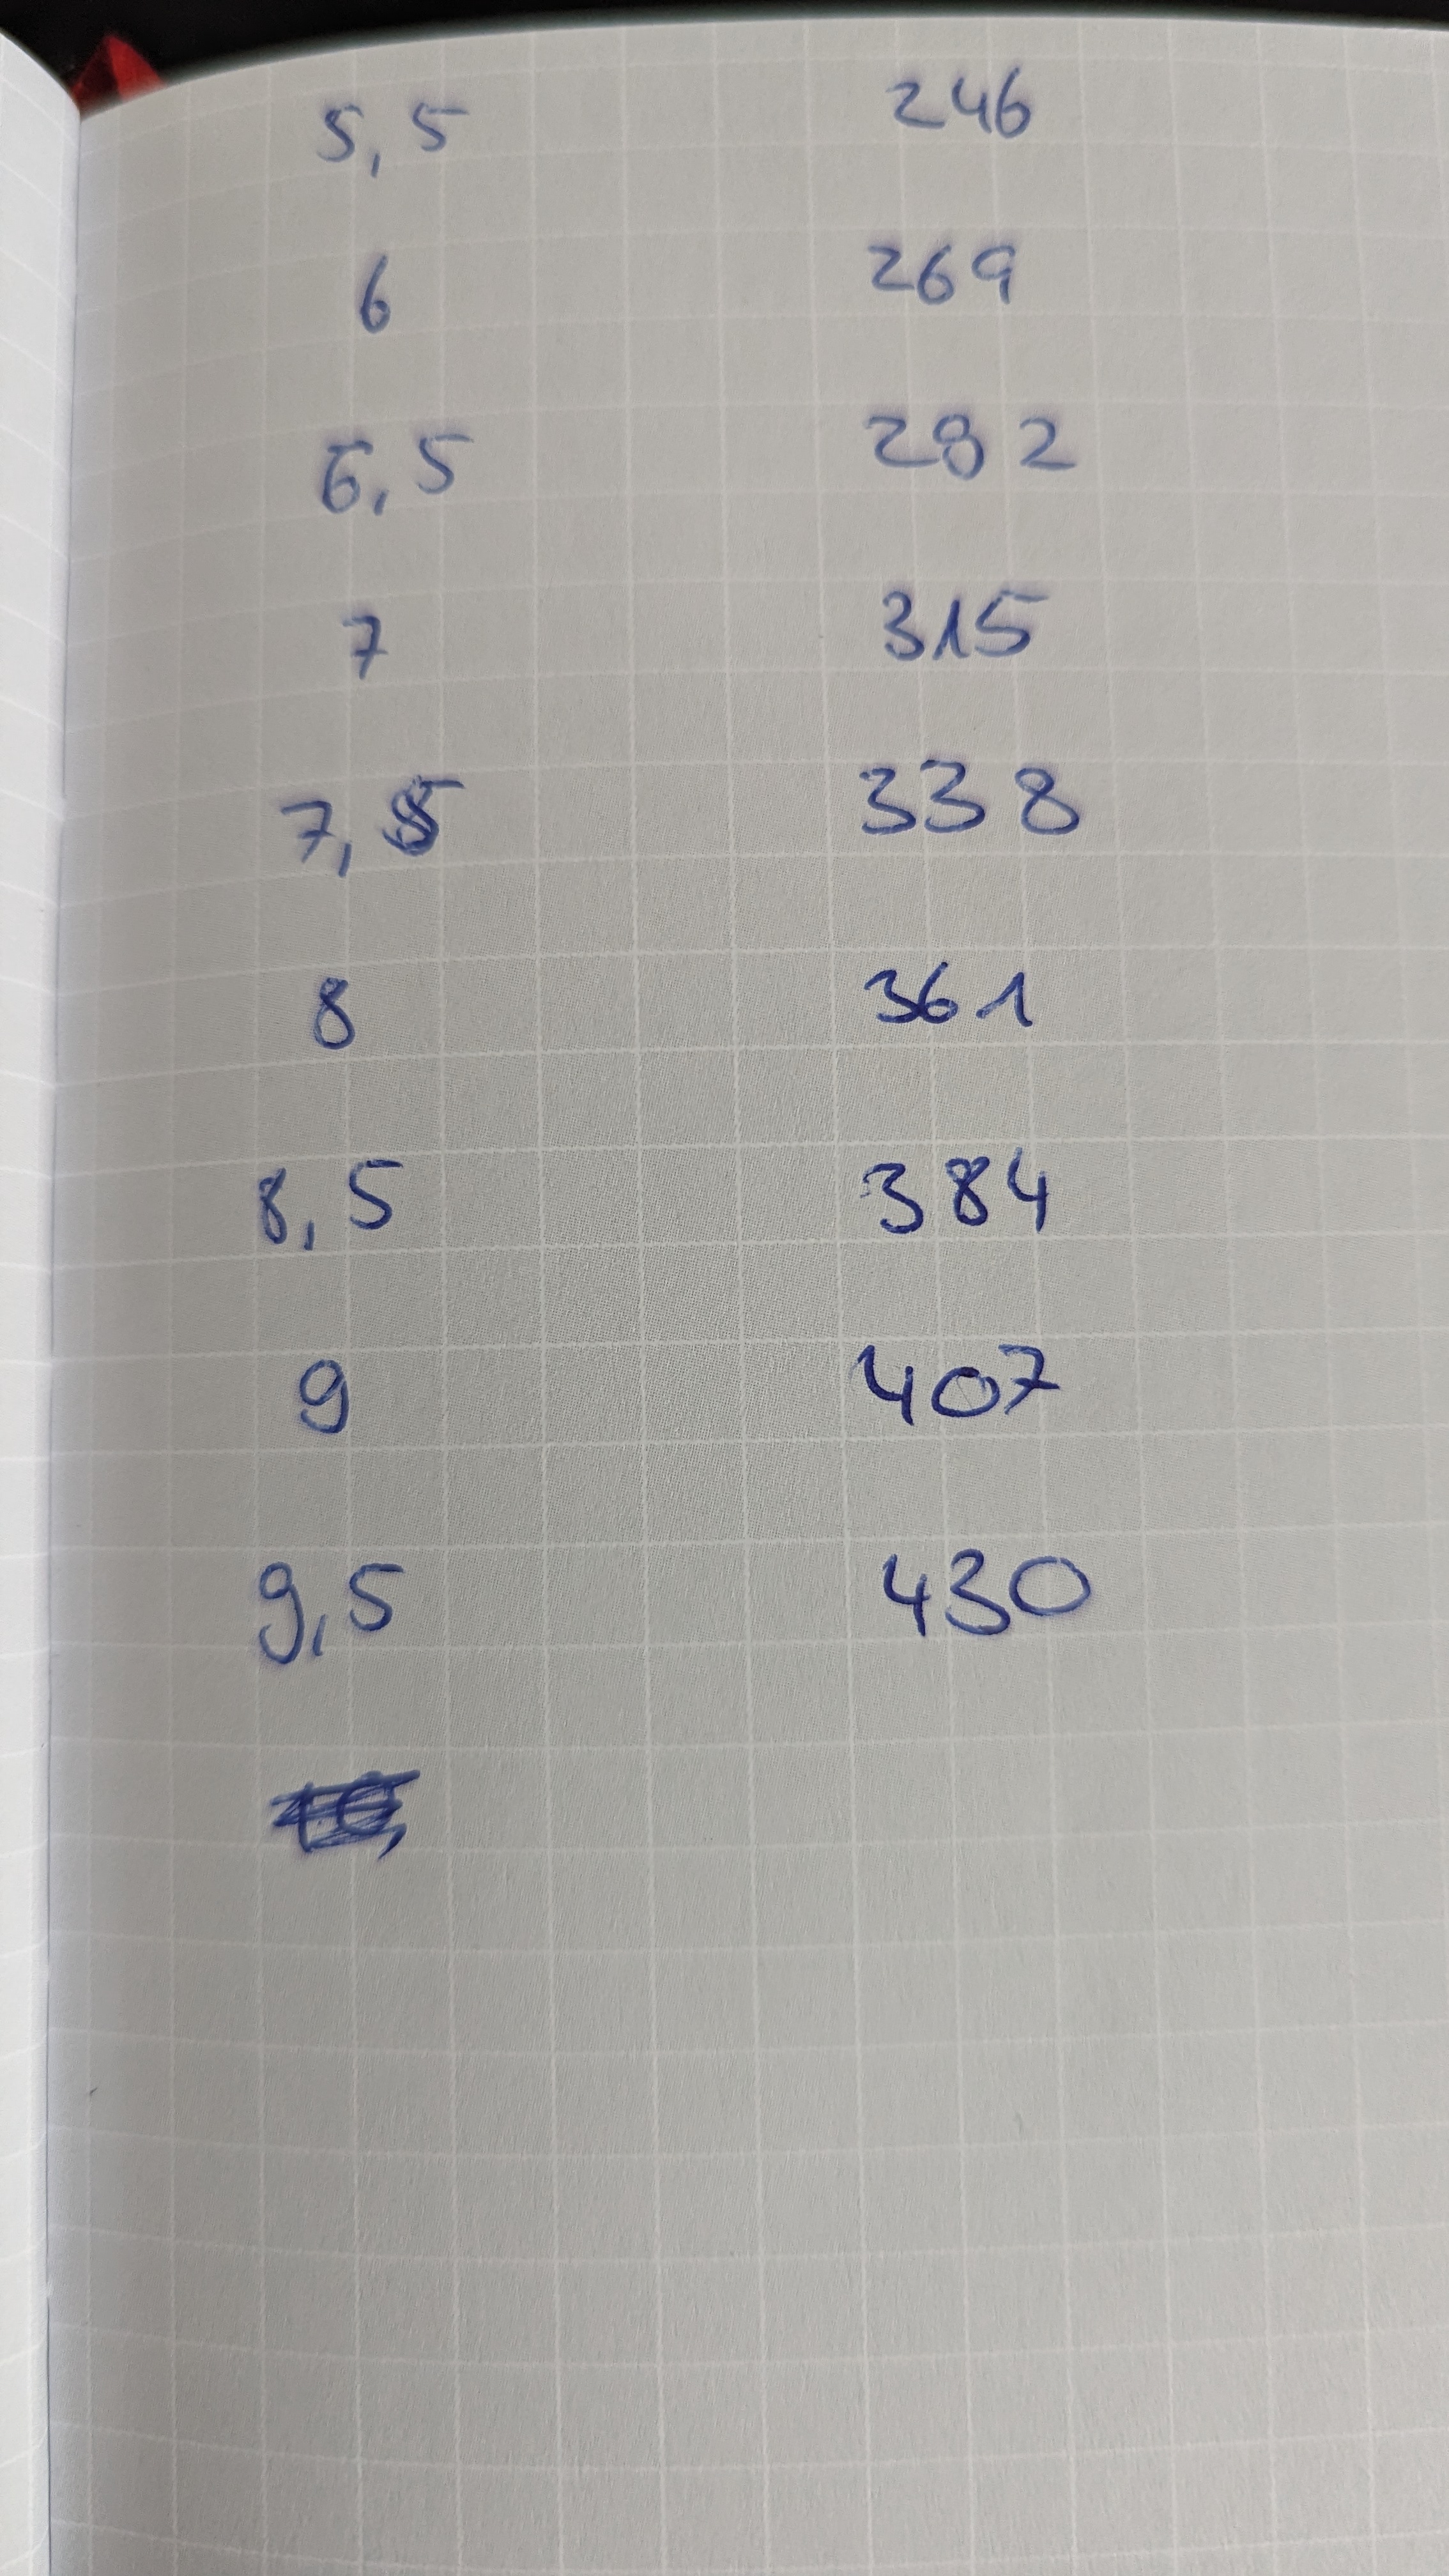 5,5 246
6 269
6,5 292
7 315
7,5 338
8 361
8,5 384
9 407
9,5 430